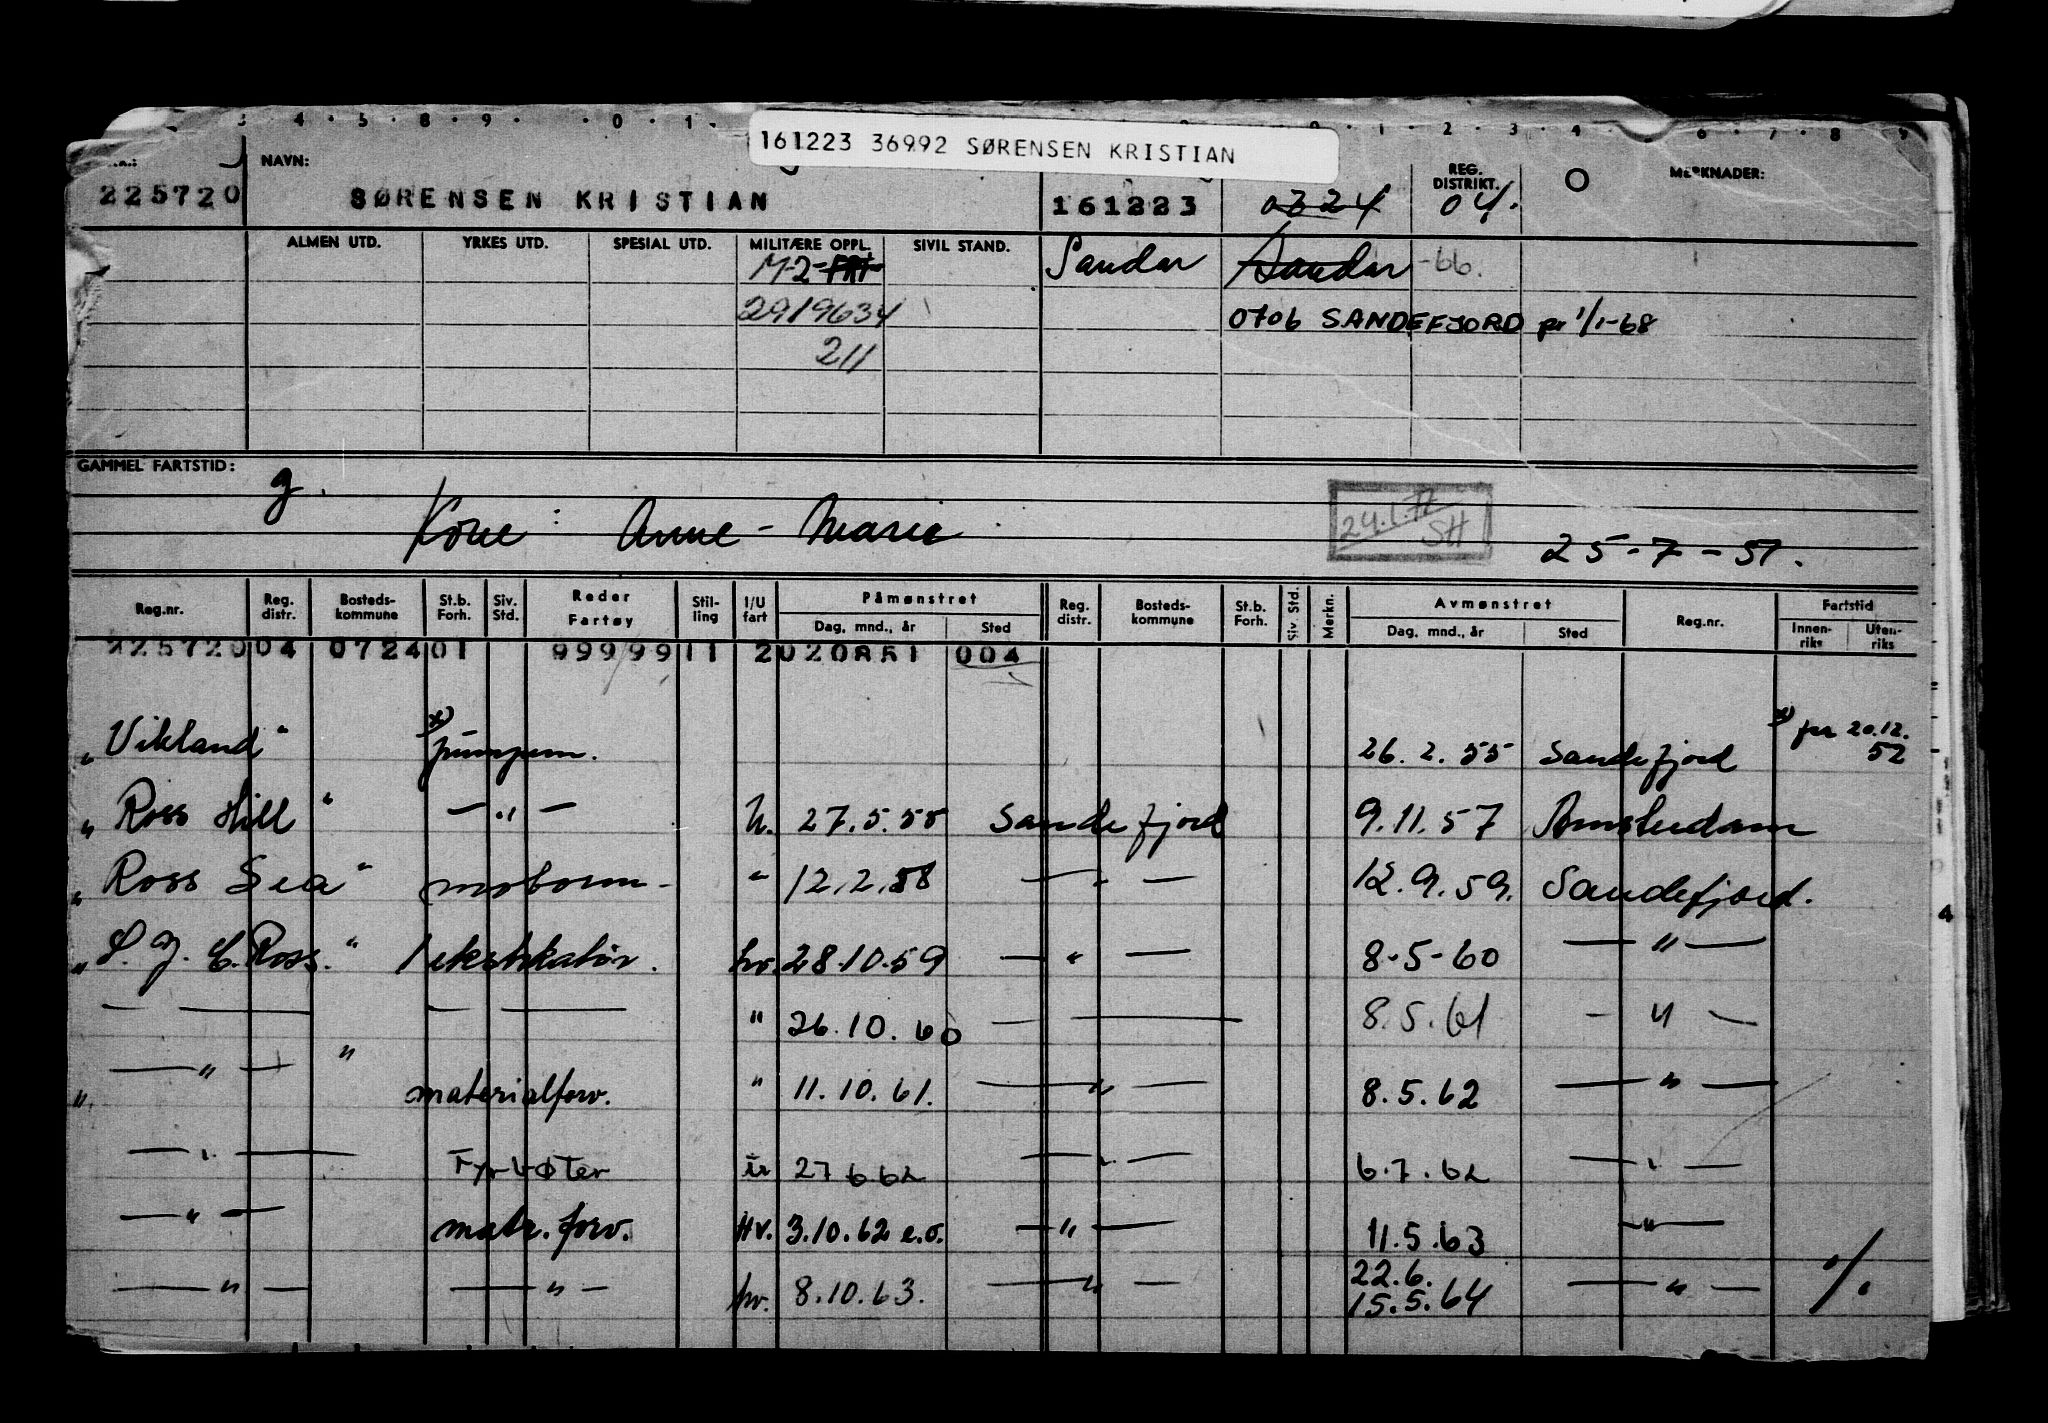 161223 36992 SØRENSEN KRISTIAN
NAVN: REG. DISTRIKT. MERKNADER:
225720 SØRENSEN KRISTIAN 161223 0724 04.
ALMEN UTD. YRKES UTD. SPESIAL UTD. MILITÆRE OPPL. SIVIL STAND.
M-2- Sandar Sandar -66.
2919634 0706 SANDEFJORD pr 1/1-68
211
GAMMEL FARTSTID:
g.
Kone: Anne-Marie 24.1.72 SH 25-7-51.
Reg.nr. Reg. distr. Bosteds-kommune St.b. Forh. Siv. Std. Reder Fartøy Stil-ling I/U fart Påmønstret Dag, mnd., år Sted Reg. distr. Bosteds-kommune St.b. Forh. Siv. Std. Merkn. Avmønstret Dag, mnd., år Sted Reg.nr. Fartstid Innen-riks Uten-riks
225720 04 0724 01 99999 11 2 020851 004
„Vikland" x) pumpem. 26.2.55 Sandefjord x) fra 20.12.52
„Ross Hill" — „ — U. 27.5.55 Sandefjord 9.11.57 Amsterdam
„Ross Sea" motorm. " 12.2.58 — „ — 12.9.59. Sandefjord.
„S. J. C. Ross." hv. 28.10.59 — " — 8-5-60 — " —
— — — — " 26.10.60 — — 8.5.61 — " —
„ — " — " materialforv. " 11.10.61. — " — 8.5.62 — " —
— " — Fyrbøter u 27 6 62 — " — 6.7.62 — " —
— " — matr. forv. Hv. 3.10.62 e.o. — " — 11.5.63 — " —
— " — — " — hv. 8.10.63. — " — 22.6. 15.5.64 — " — ./.